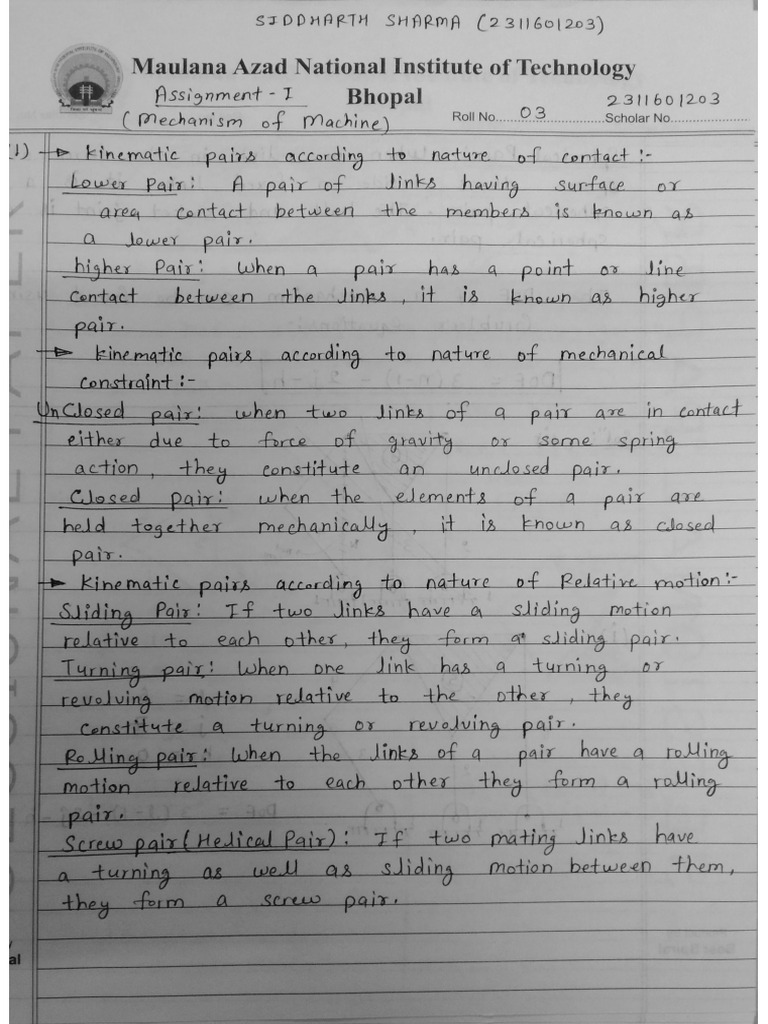 SIDDHARTH SHARMA (2311601203)
Maulana Azad National Institute of Technology
Assignment - I Bhopal 2311601203
(Mechanism of Machine) Roll No......03..............Scholar No.....................
1) → Kinematic pairs according to nature of contact :-
Lower Pair: A pair of links having surface or
area contact between the members is known as
a lower pair.
higher Pair: When a pair has a point or line
contact between the links, it is known as higher
pair.
→ Kinematic pairs according to nature of mechanical
constraint :-
UnClosed pair: when two links of a pair are in contact
either due to force of gravity or some spring
action, they constitute an unclosed pair.
Closed pair: when the elements of a pair are
held together mechanically, it is known as closed
pair.
→ Kinematic pairs according to nature of Relative motion:-
Sliding Pair: If two links have a sliding motion
relative to each other, they form a sliding pair.
Turning pair: When one link has a turning or
revolving motion relative to the other, they
constitute a turning or revolving pair.
Rolling pair: When the links of a pair have a rolling
motion relative to each other they form a rolling
pair.
Screw pair (Helical Pair): If two mating links have
a turning as well as sliding motion between them,
they form a screw pair.
al